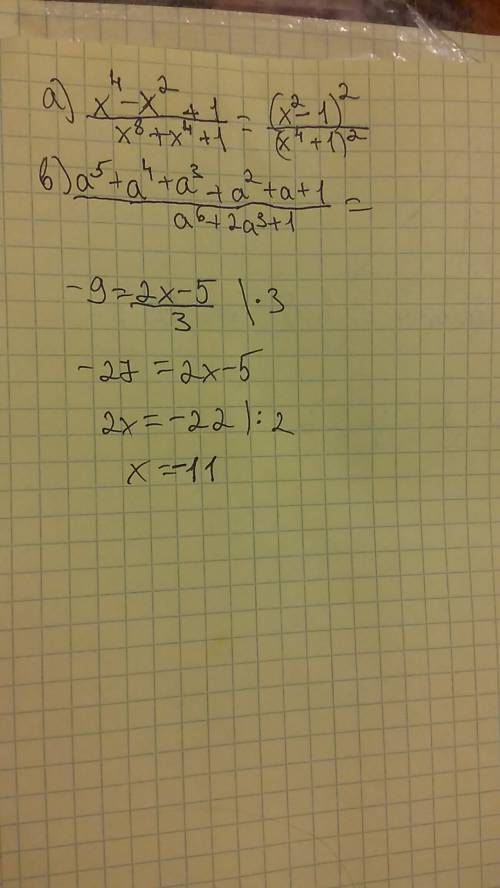 а) (x⁴ - x² + 1)/(x⁸ + x⁴ + 1) = (x² - 1)²/(x⁴ + 1)²
в) (a⁵ + a⁴ + a³ + a² + a + 1)/(a⁶ + 2a³ + 1) =
-9 = (2x - 5)/3 | · 3
-27 = 2x - 5
2x = -22 | : 2
x = -11